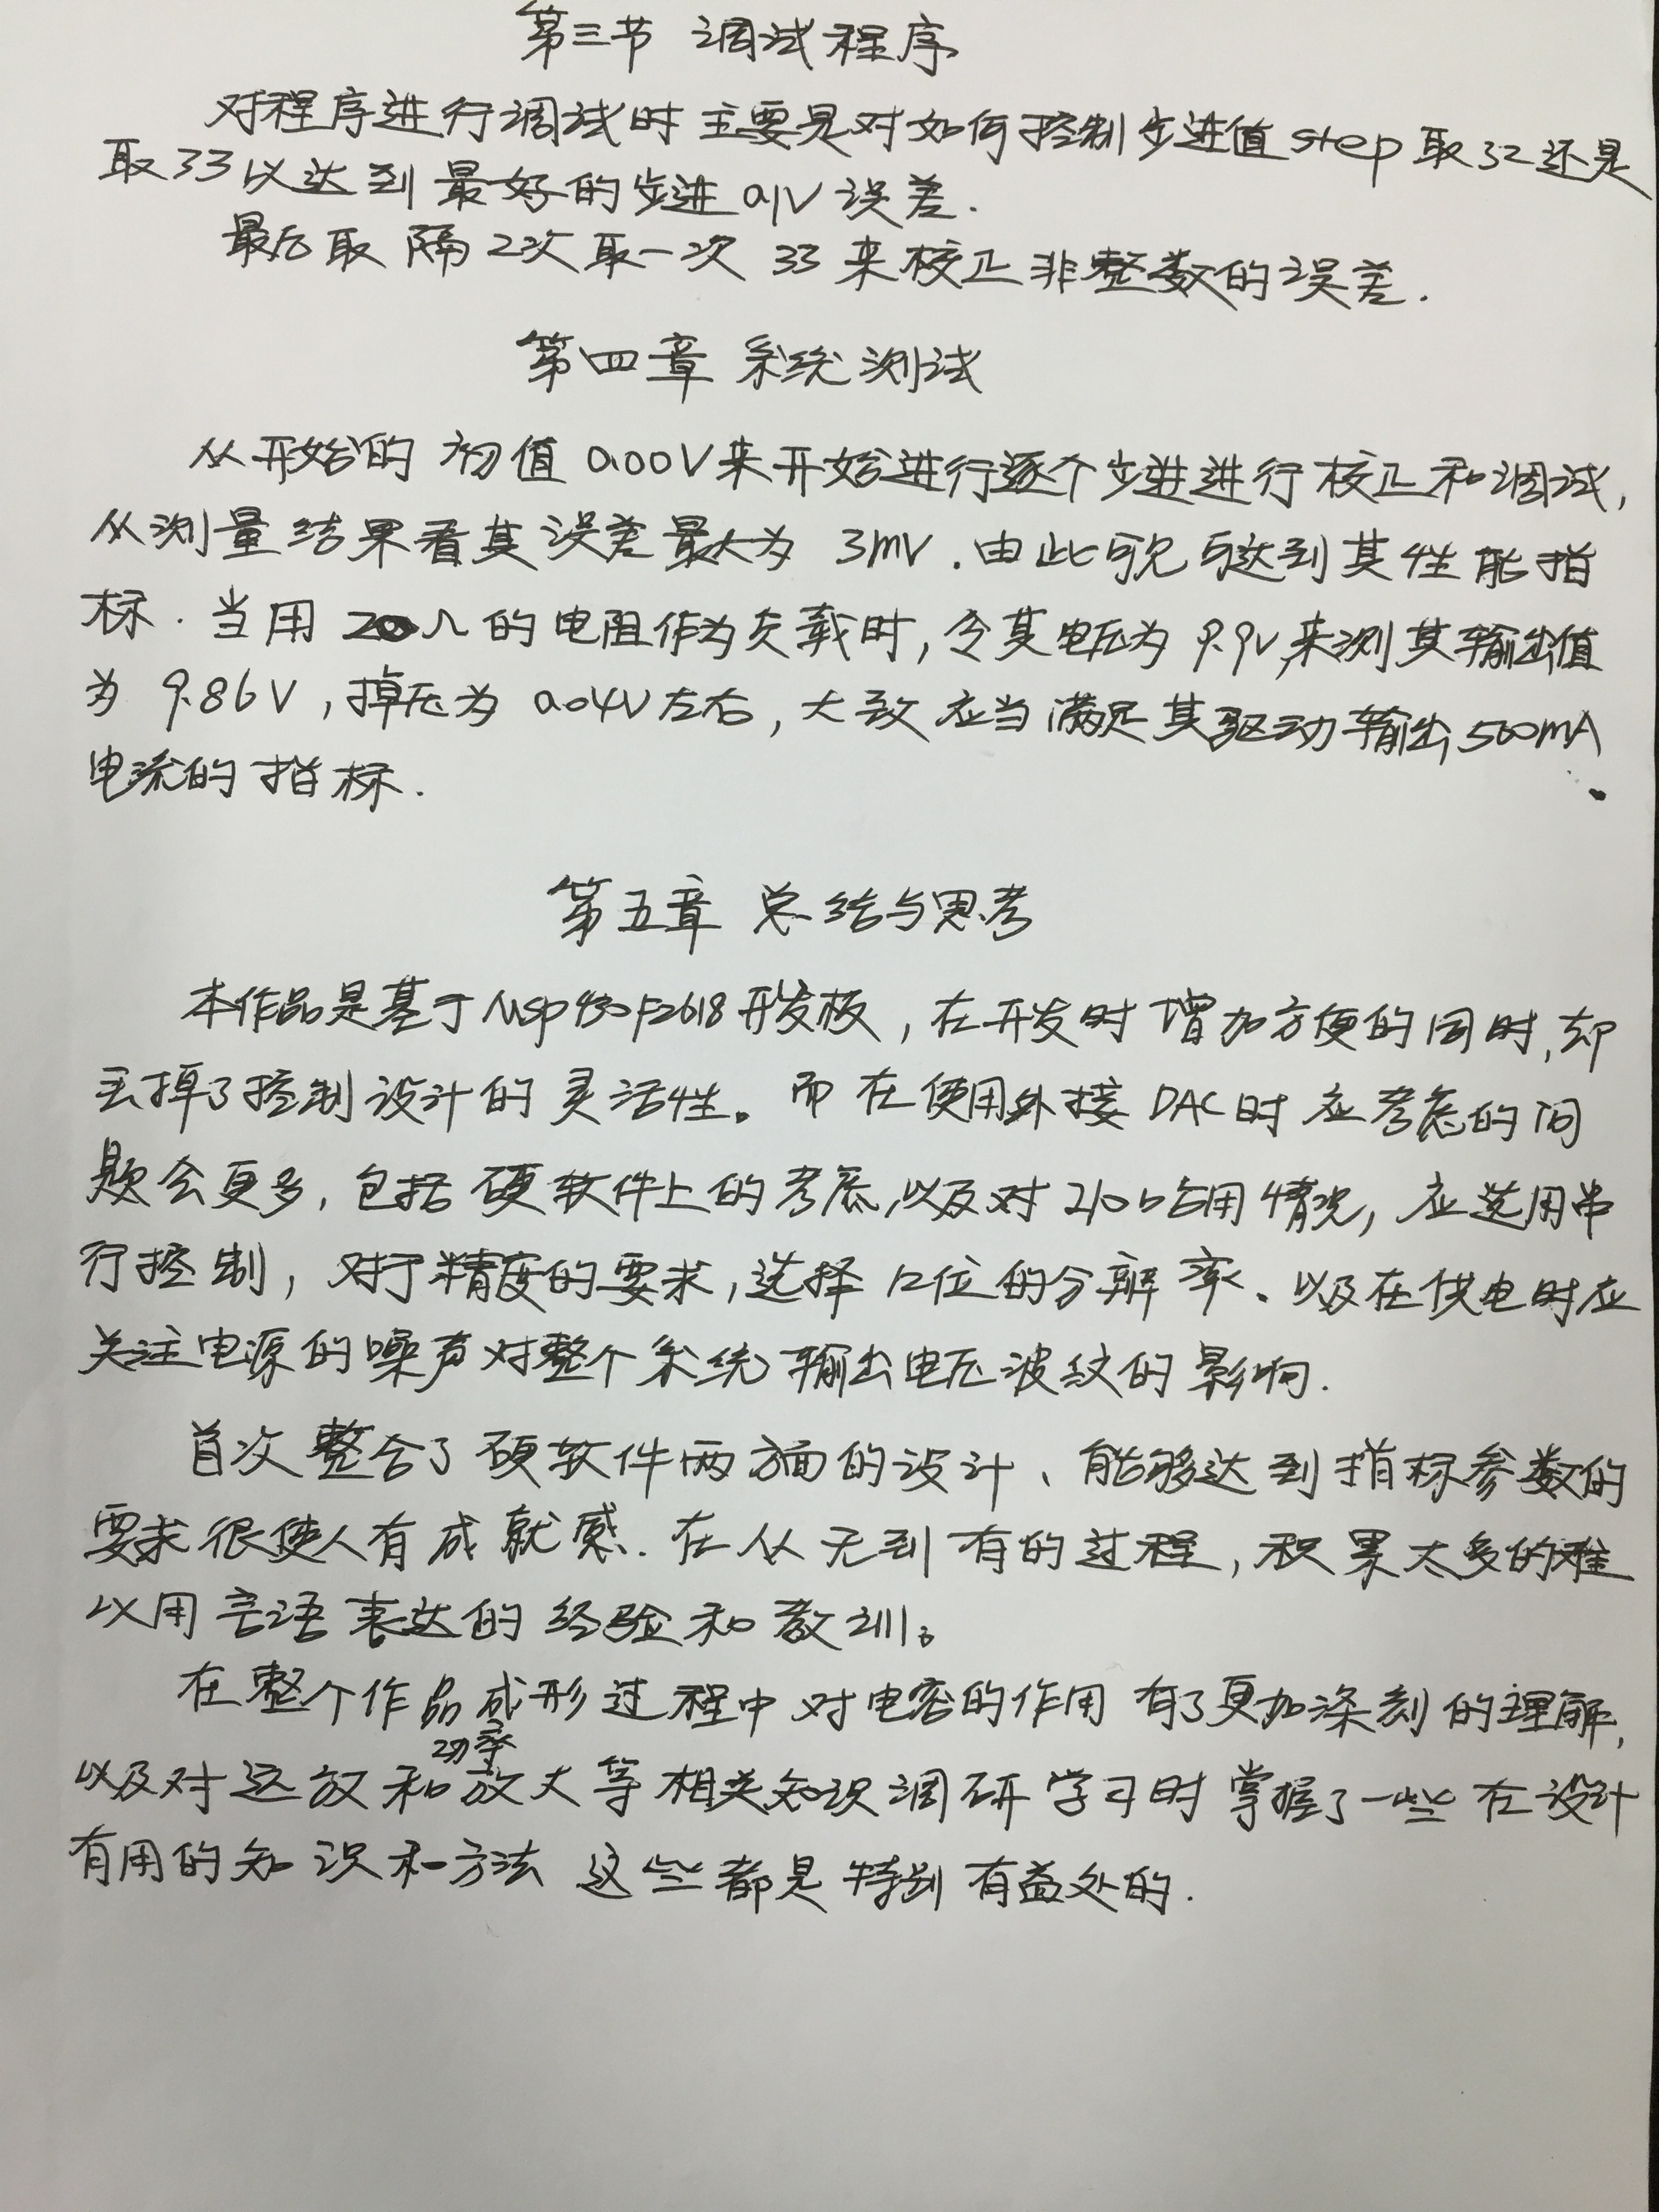 第三节 调试程序
对程序进行调试时主要是对如何控制步进值step取32还是
取33以达到最好的步进0.1V误差.
最后取隔2次取一次33来校正非整数的误差.
第四章 系统测试
从开始的初值0.00V来开始进行逐个步进进行校正和调试,
从测量结果看其误差最大为3mV.由此可见可达到其性能指
标.当用20Ω的电阻作为负载时,令其电压为9.9V,来测其输出值
为9.86V,掉压为0.04V左右,大致应当满足其驱动输出500mA
电流的指标.
第五章 总结与思考
本作品是基于Msp430F2618开发板,在开发时增加方便的同时,却
丢掉了控制设计的灵活性。而在使用外接DAC时应考虑的问
题会更多,包括硬软件上的考虑,以及对占用情况,应选用串
行控制,对于精度的要求,选择12位的分辨率、以及在供电时应
关注电源的噪声对整个系统输出电压波纹的影响.
首次整合了硬软件两方面的设计、能够达到指标参数的
要求很使人有成就感.在从无到有的过程,积累太多的难
以用言语表达的经验和教训。
在整个作品成形过程中对电容的作用有了更加深刻的理解,
以及对运放和功率放大等相关知识调研学习时掌握了一些在设计
有用的知识和方法 这些都是特别有益处的.